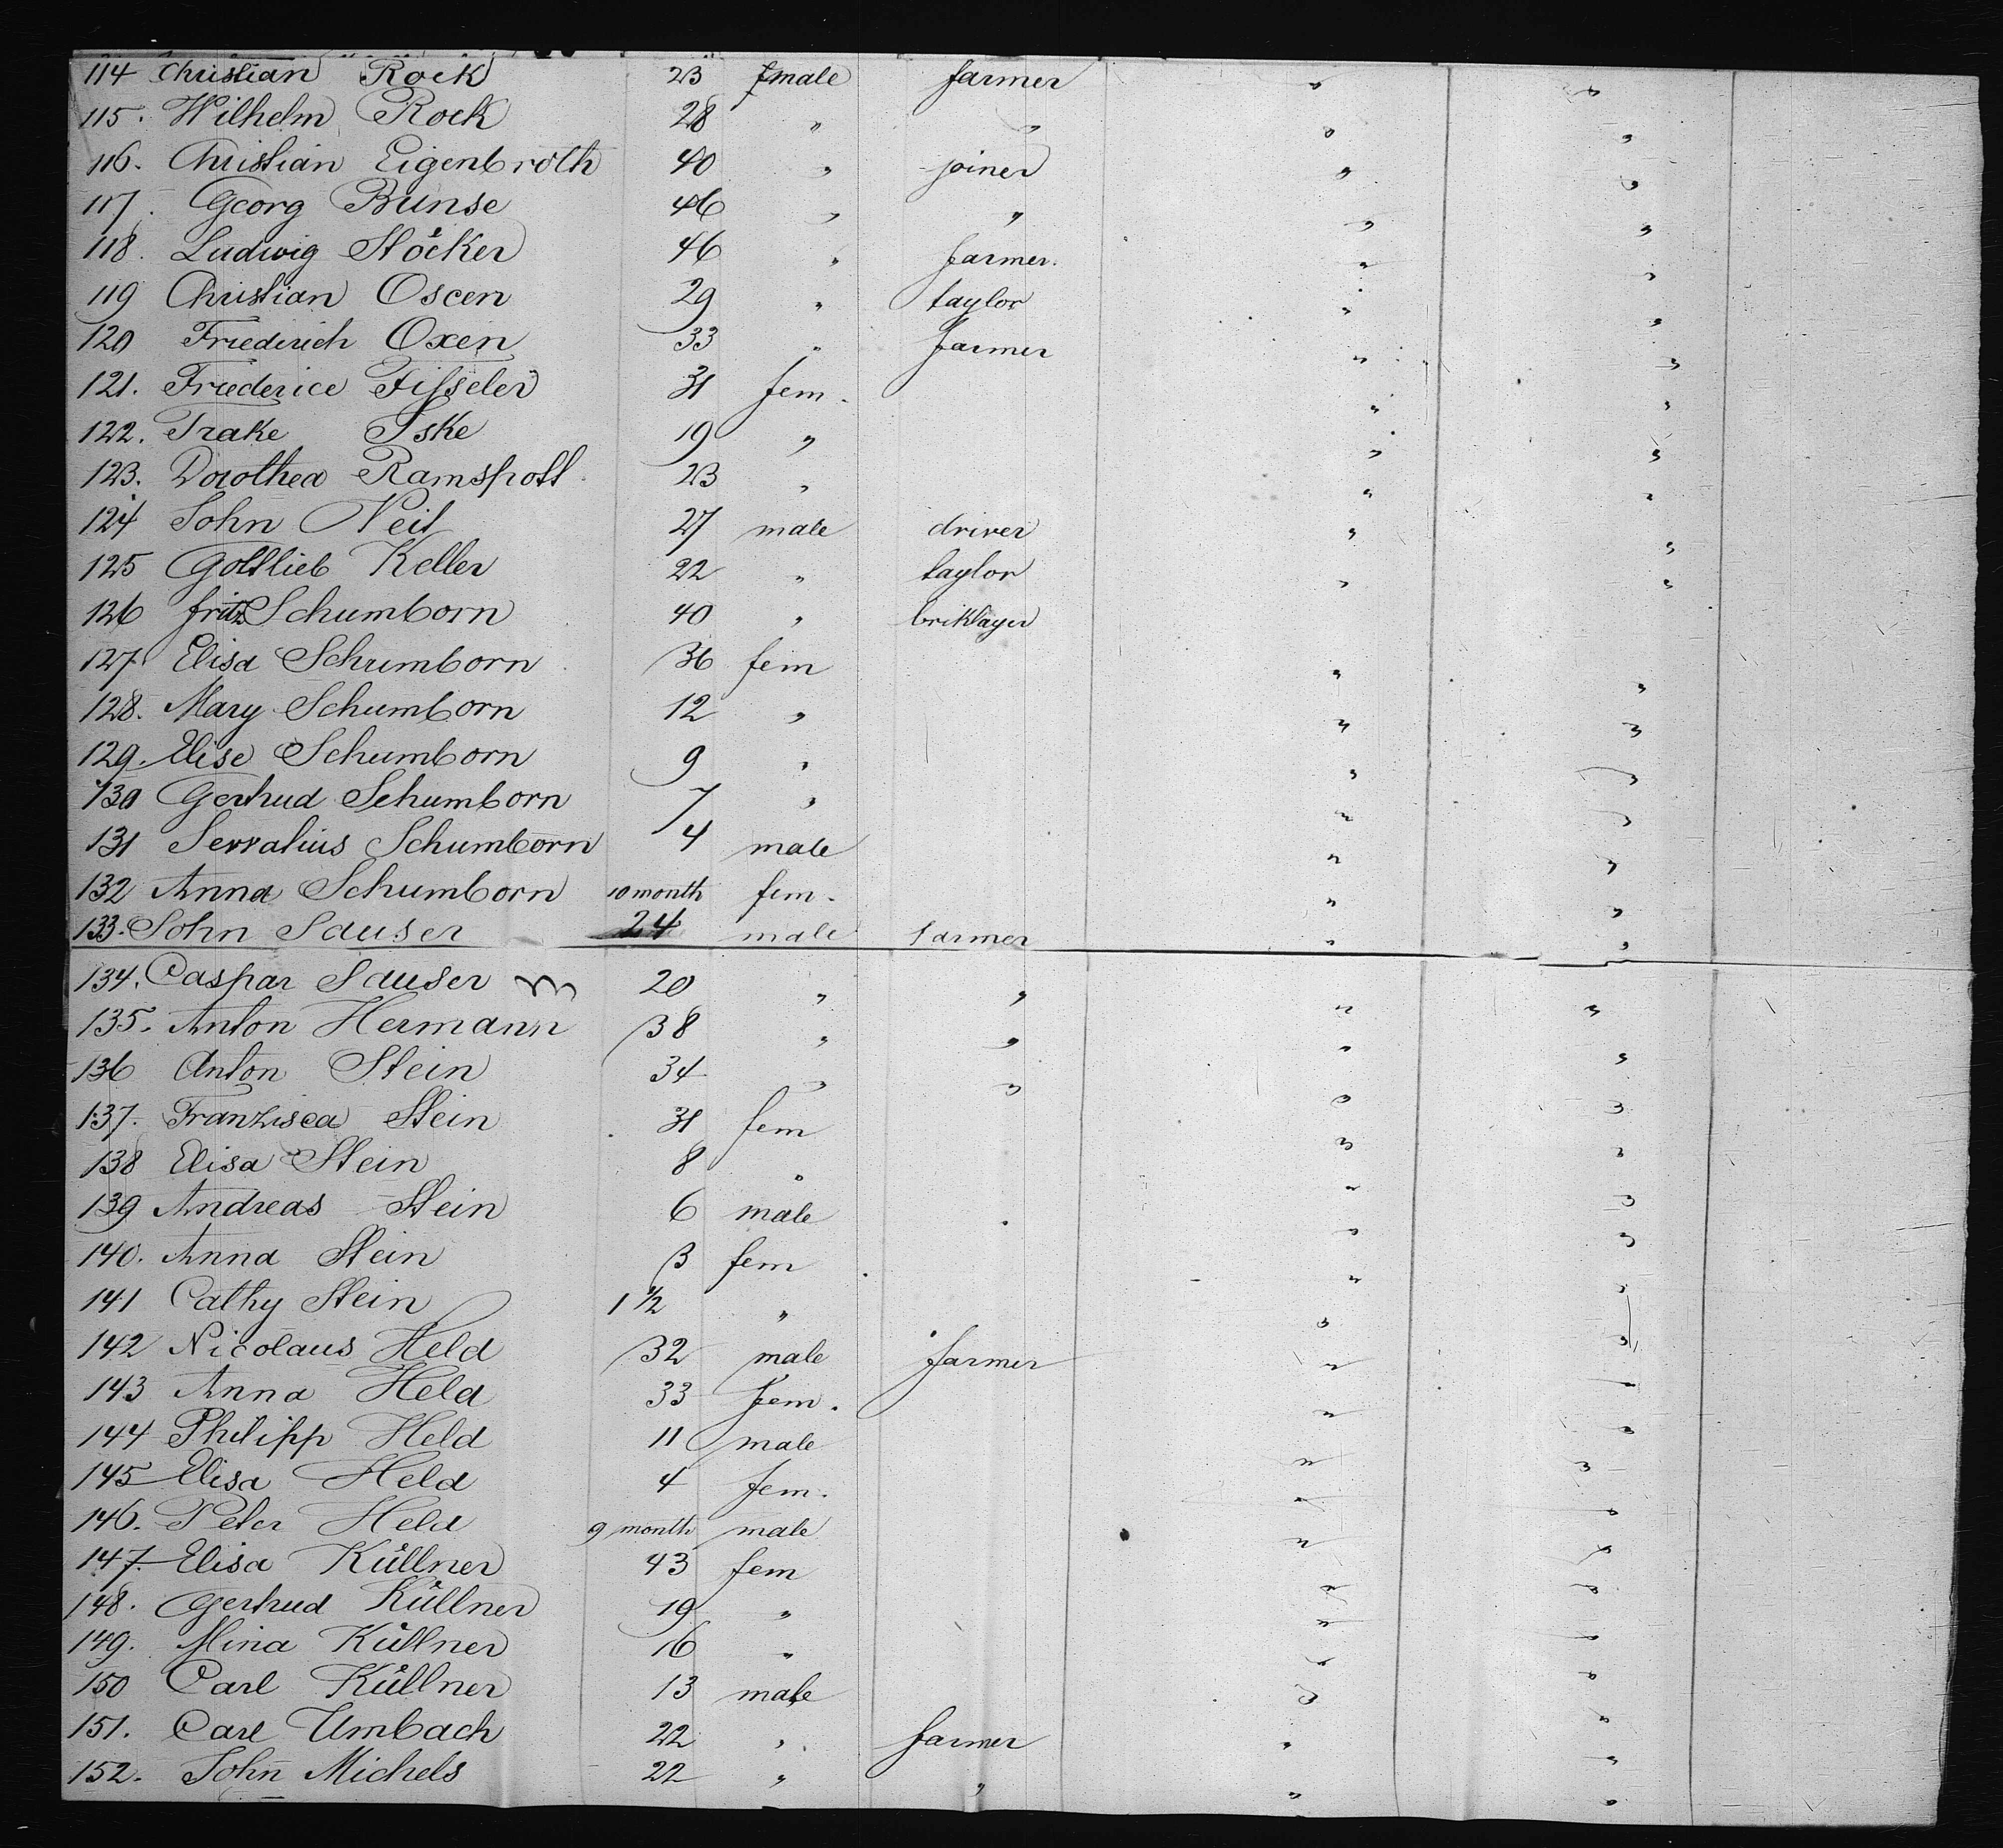 114 Christian Rock 23 fmale farmer " "
115. Wilhelm Rock 28 " " " "
116. Christian Eigenbroth 40 " joiner " "
117. Georg Bunse 46 " " " "
118. Ludwig Stöcker 46 " farmer. " "
119 Christian Oscen 29 " taylor " "
120 Friederich Oxen 33 " farmer " "
121. Friederice Fisseler 31 fem. " "
122. Trake Iske 19 " " "
123. Dorothea Ramspott 23 " " "
124 John Neit 27 male driver " "
125 Gottlieb Keller 22 " taylor " "
126 fritz Schumborn 40 " briklayer
127. Elisa Schumborn 36 fem " "
128. Mary Schumborn 12 " " "
129. Elise Schumborn 9 " " "
130 Gertrud Schumborn 7 " " "
131 Servatius Schumborn 4 male " "
132 Anna Schumborn 10 month fem. " "
133. John Sauser 24 male farmer " "
134. Caspar Sauser 20 " " " "
135. Anton Hermann 38 " " " "
136 Anton Stein 34 " " " "
137. Franzisca Stein 31 fem " "
138 Elisa Stein 8 " " "
139 Andreas Stein 6 male " "
140. Anna Stein 3 fem " "
141 Cathy Stein 1 1/2 " " "
142 Nicolaus Held 32 male farmer " "
143 Anna Held 33 fem. " "
144 Philipp Held 11 male " "
145 Elisa Held 4 fem. " "
146. Peter Held 9 month male " "
147. Elisa Küllner 43 fem " "
148. Gertrud Küllner 19 " " "
149. Mina Küllner 16 " " "
150 Carl Küllner 13 male " "
151. Carl Umbach 22 " farmer " "
152. John Michels 22 " " " "